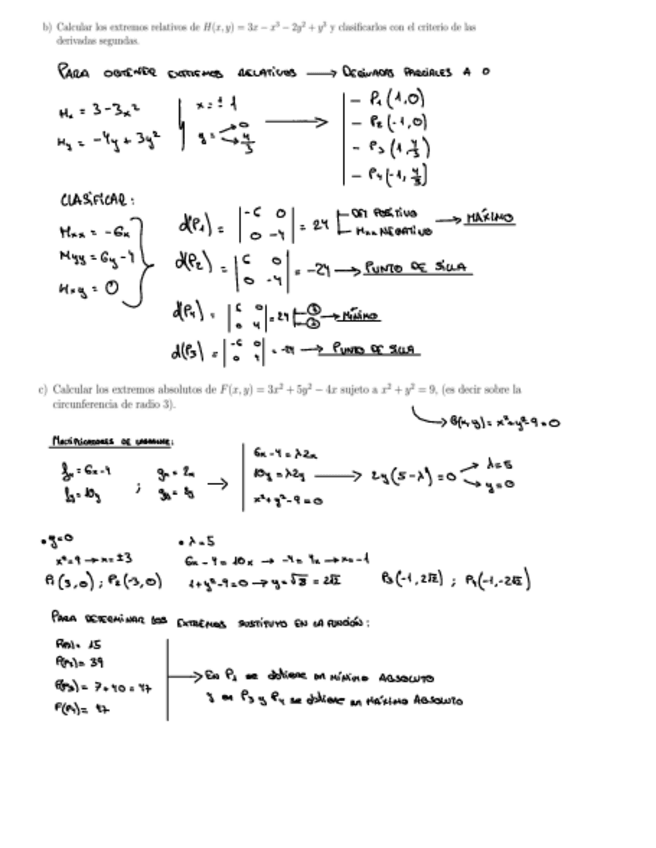 b) Calcular los extremos relativos de H(x, y) = 3x − x³ − 2y² + y³ y clasificarlos con el criterio de las
derivadas segundas.
PARA OBTENER EXTREMOS RELATIVOS ⟶ DERIVADAS PARCIALES A 0
Hₓ = 3-3x² | x = ±1 ⟶ - P₁(1,0)
Hy = -4y + 3y² | y = 0, 4/3 - P₂(-1,0)
- P₃(1, 4/3)
- P₄(-1, 4/3)
CLASIFICAR:
Hxx = -6x
Hyy = 6y-4
Hxy = 0
d(P₁) = |-6 0; 0 -4| = 24 DET POSITIVO, Hxx NEGATIVO ⟶ MÁXIMO
d(P₂) = |6 0; 0 -4| = -24 ⟶ PUNTO DE SILLA
d(P₄) = |6 0; 0 4| = 24 ⟶ MÍNIMO
d(P₃) = |-6 0; 0 4| = -24 ⟶ PUNTO DE SILLA
c) Calcular los extremos absolutos de F(x, y) = 3x² + 5y² − 4x sujeto a x² + y² = 9, (es decir sobre la
circunferencia de radio 3).
G(x,y) = x²+y²-9=0
MULTIPLICADORES DE LAGRANGE:
fx = 6x-4 ; gx = 2x ⟶ 6x-4 = λ2x
fy = 10y gy = 2y 10y = λ2y ⟶ 2y(5-λ)=0 λ=5, y=0
x²+y²-9=0
• y=0
x²=9 → x=±3
P₁(3,0) ; P₂(-3,0)
• λ=5
6x-4=10x → -4=4x → x=-1
1+y²-9=0 → y=√8 = 2√2
P₃(-1, 2√2) ; P₄(-1,-2√2)
PARA DETERMINAR LOS EXTREMOS SUSTITUYO EN LA FUNCIÓN:
F(P₁) = 15
F(P₂) = 39
F(P₃) = 7+40 = 47
F(P₄) = 47
⟶ En P₁ se obtiene un MÍNIMO ABSOLUTO
y en P₃ y P₄ se obtiene un MÁXIMO ABSOLUTO